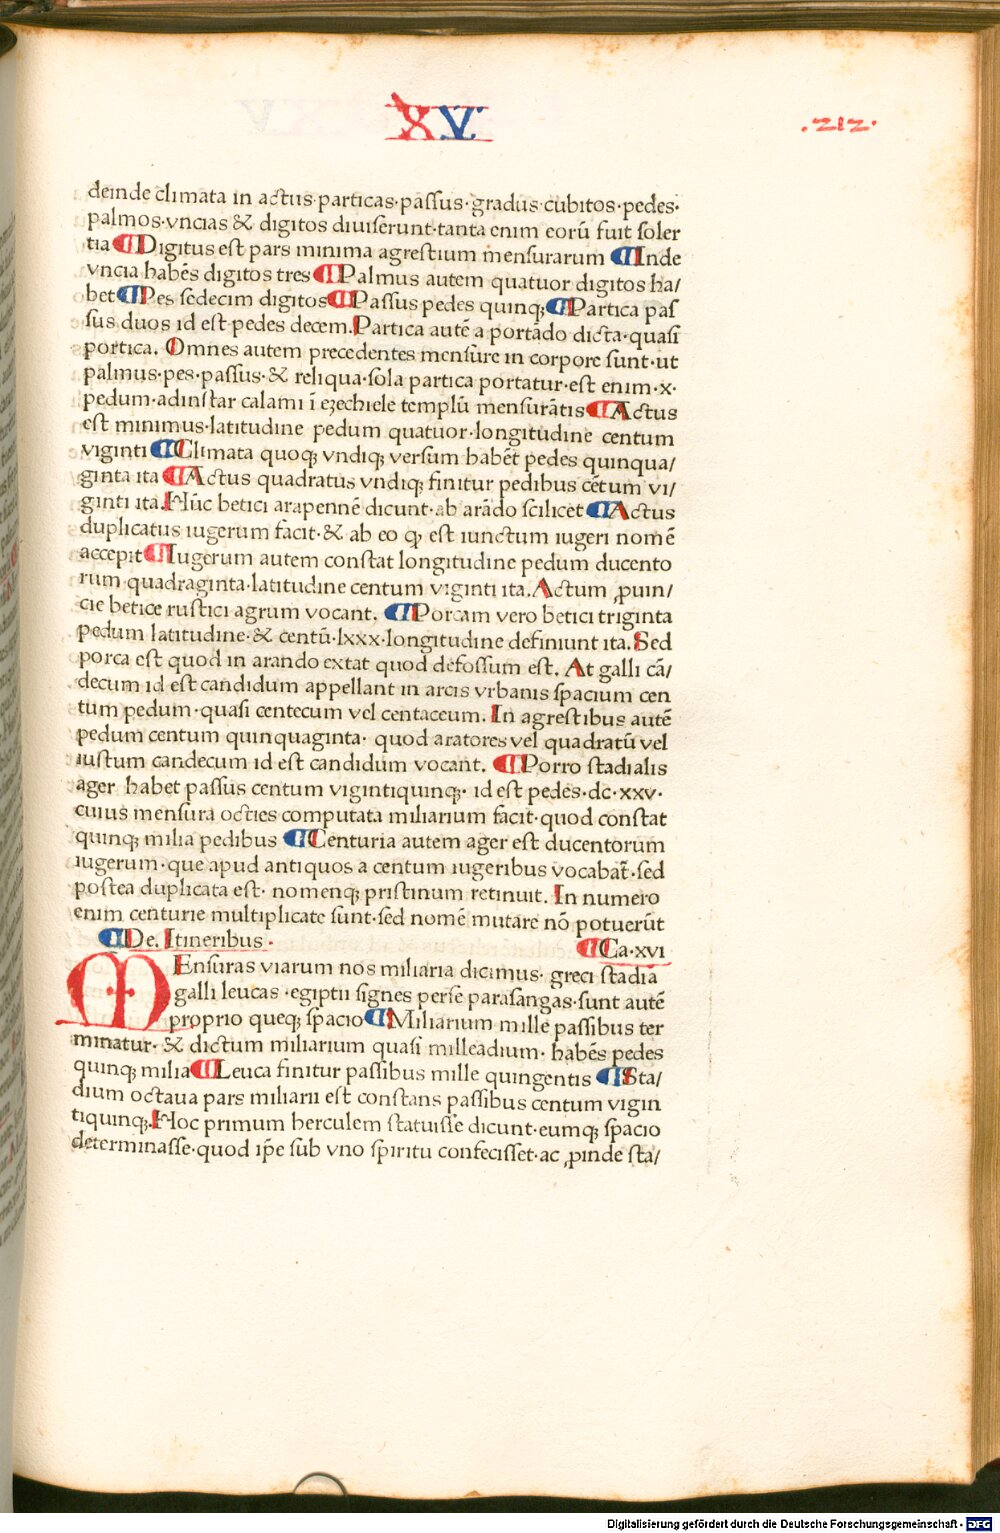 XV
.212.
deinde climata in actus·particas·passus·gradus·cubitos·pedes·
palmos·vncias & digitos diuiserunt·tanta enim eorū fuit soler
tia ¶Digitus est pars minima agrestium mensurarum ¶Inde
vncia habēs digitos tres ¶Palmus autem quatuor digitos ha/
bet ¶Pes sedecim digitos ¶Passus pedes quinqꝫ ¶Partica pas
sus duos id est pedes decem. Partica autē a portādo dicta·quasi
portica. Omnes autem precedentes mensure in corpore sunt·ut
palmus·pes·passus·& reliqua·sola partica portatur·est enim·x·
pedum·adinstar calami ī ezechiele templū mensurātis ¶Actus
est minimus·latitudine pedum quatuor·longitudine centum
viginti ¶Climata quoqꝫ vndiqꝫ versum habēt pedes quinqua/
ginta ita ¶Actus quadratus vndiqꝫ finitur pedibus cētum vi/
ginti ita. Hūc betici arapennē dicunt·ab arādo scilicet ¶Actus
duplicatus iugerum facit·& ab eo ꝙ est iunctum iugeri nomē
accepit ¶Iugerum autem constat longitudine pedum ducento
rum quadraginta·latitudine centum viginti ita. Actum ꝓuin/
cie betice rustici agrum vocant. ¶Porcam vero betici triginta
pedum latitudine·& centū·lxxx·longitudine definiunt ita. Sed
porca est quod in arando extat quod defossum est. At galli cā/
decum id est candidum appellant in arcis vrbanis spacium cen
tum pedum·quasi centecum vel centaceum. In agrestibus autē
pedum centum quinquaginta· quod aratores vel quadratū vel
iustum candecum id est candidum vocant. ¶Porro stadialis
ager habet passus centum vigintiquinqꝫ· id est pedes·dc·xxv·
cuius mensura octies computata miliarium facit·quod constat
quinqꝫ milia pedibus ¶Centuria autem ager est ducentorum
iugerum·que apud antiquos a centum iugeribus vocabat̄·sed
postea duplicata est· nomenqꝫ pristinum retinuit. In numero
enim centurie multiplicate sunt·sed nomē mutare nō potuerūt
¶De. Itineribus· ¶Ca·xvi
MEnsuras viarum nos miliaria dicimus· greci stadia
galli leucas·egiptii signes perse parasangas·sunt autē
proprio queqꝫ spacio ¶Miliarium mille passibus ter
minatur· & dictum miliarium quasi milleadium· habēs pedes
quinqꝫ milia ¶Leuca finitur passibus mille quingentis ¶Sta/
dium octaua pars miliarii est constans passibus centum vigin
tiquinqꝫ. Hoc primum herculem statuisse dicunt·eumqꝫ spacio
determinasse·quod ip̄e sub vno spiritu confecisset·ac ꝓinde sta/
Digitalisierung gefördert durch die Deutsche Forschungsgemeinschaft - DFG